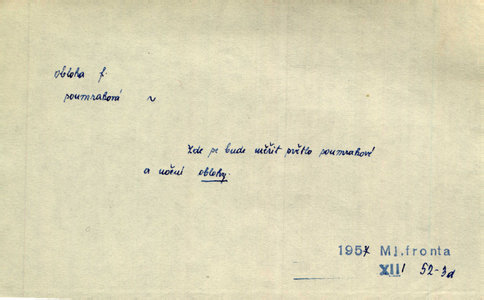 obloha f.
soumraková ~
Zde se bude měřit světlo soumrakové
a noční oblohy.
1957 Ml.fronta
XIII 52-3d